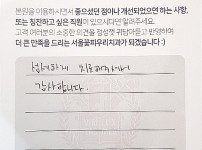 본원을 이용하시면서 좋으셨던 점이나 개선되었으면 하는 사항,
또는 칭찬하고 싶은 직원이 있으시다면 알려주세요.
고객 여러분의 소중한 의견을 정성껏 귀담아듣고 반영하여
더 큰 만족을 드리는 서울꿈피우리치과가 되겠습니다 :)
섬세하게 치료해주셔서
감사합니다.